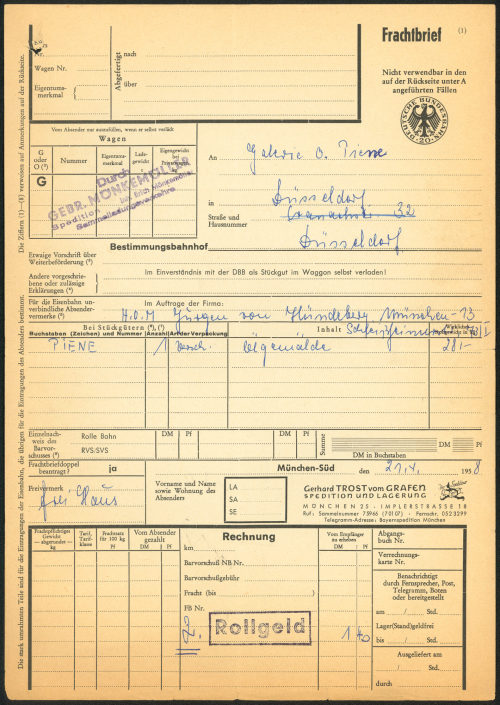 Frachtbrief
(1)
Nr.
Wagen Nr.
Eigentums-
merkmal
Abgefertigt
nach
über
Nicht verwendbar in den
auf der Rückseite unter A
angeführten Fällen
DEUTSCHE BUNDESBAHN
20
Die Ziffern (1)—(8) verweisen auf Anmerkungen auf der Rückseite.
Vom Absender nur auszufüllen, wenn er selbst verlädt
Wagen
G
oder
O (²)
Nummer
Eigentums-
merkmal
Lade-
gewicht
Eigengewicht
bei
kg
G
Durch
GEBR. MÖNKEMÖLLER
Spedition
Sammelladungsverkehre
An
Galerie O. Piene
in
Düsseldorf
Straße und
Hausnummer
32
Düsseldorf
Bestimmungsbahnhof
Etwaige Vorschrift über
Weiterbeförderung (³)
Im Einverständnis mit der DBB als Stückgut im Waggon selbst verladen!
Andere vorgeschrie-
bene oder zulässige
Erklärungen (⁴)
Für die Eisenbahn un-
verbindliche Absender-
vermerke (⁵)
Im Auftrage der Firma:
Jürgen von Hündeberg München-13
Bei Stückgütern (⁶), (⁷)
Inhalt
Buchstaben (Zeichen) und Nummer
Anzahl
Art der Verpackung
Wirkliches
PIENE
1
Versch.
Ölgemälde
28,-
Einzelnach-
weis des
Barvor-
schusses (⁸)
Rolle Bahn
RVS/SVS
DM
Pf
DM
Pf
Summe
DM
Pf
DM in Buchstaben
Frachtbriefdoppel
beantragt?
ja
München-Süd
den
21.4.
1958
Freivermerk
frei Haus
Vorname und Name
sowie Wohnung des
Absenders
LA
SA
SE
Gerhard TROST vom GRAFEN
SPEDITION UND LAGERUNG
MÜNCHEN 25 · IMPLERSTRASSE 18
Ruf: Sammelnummer 73966 (70107) · Fernschr. 0523299
Telegramm-Adresse: Bayernspedition München
Die stark umrahmten Teile sind für die Eintragungen der Eisenbahn, die übrigen für die Eintragungen des Absenders bestimmt.
Frachtpflichtiges
Gewicht
— abgerundet —
kg
Tarif,
Tarif-
klasse
Frachtsatz
für 100 kg
Pf
Vom Absender
gezahlt
DM
Pf
Rechnung
km
Barvorschuß NB Nr.
Barvorschußgebühr
Fracht (bis )
FB Nr.
Rollgeld
Vom Empfänger
zu erheben
DM
Pf
1
40
Abgangs-
buch Nr.
Verrechnungs-
karte Nr.
Benachrichtigt
durch Fernsprecher, Post,
Telegramm, Boten
oder bereitgestellt
am / Std.
Lager(Stand)geldfrei
bis / Std.
Ausgeliefert am
durch